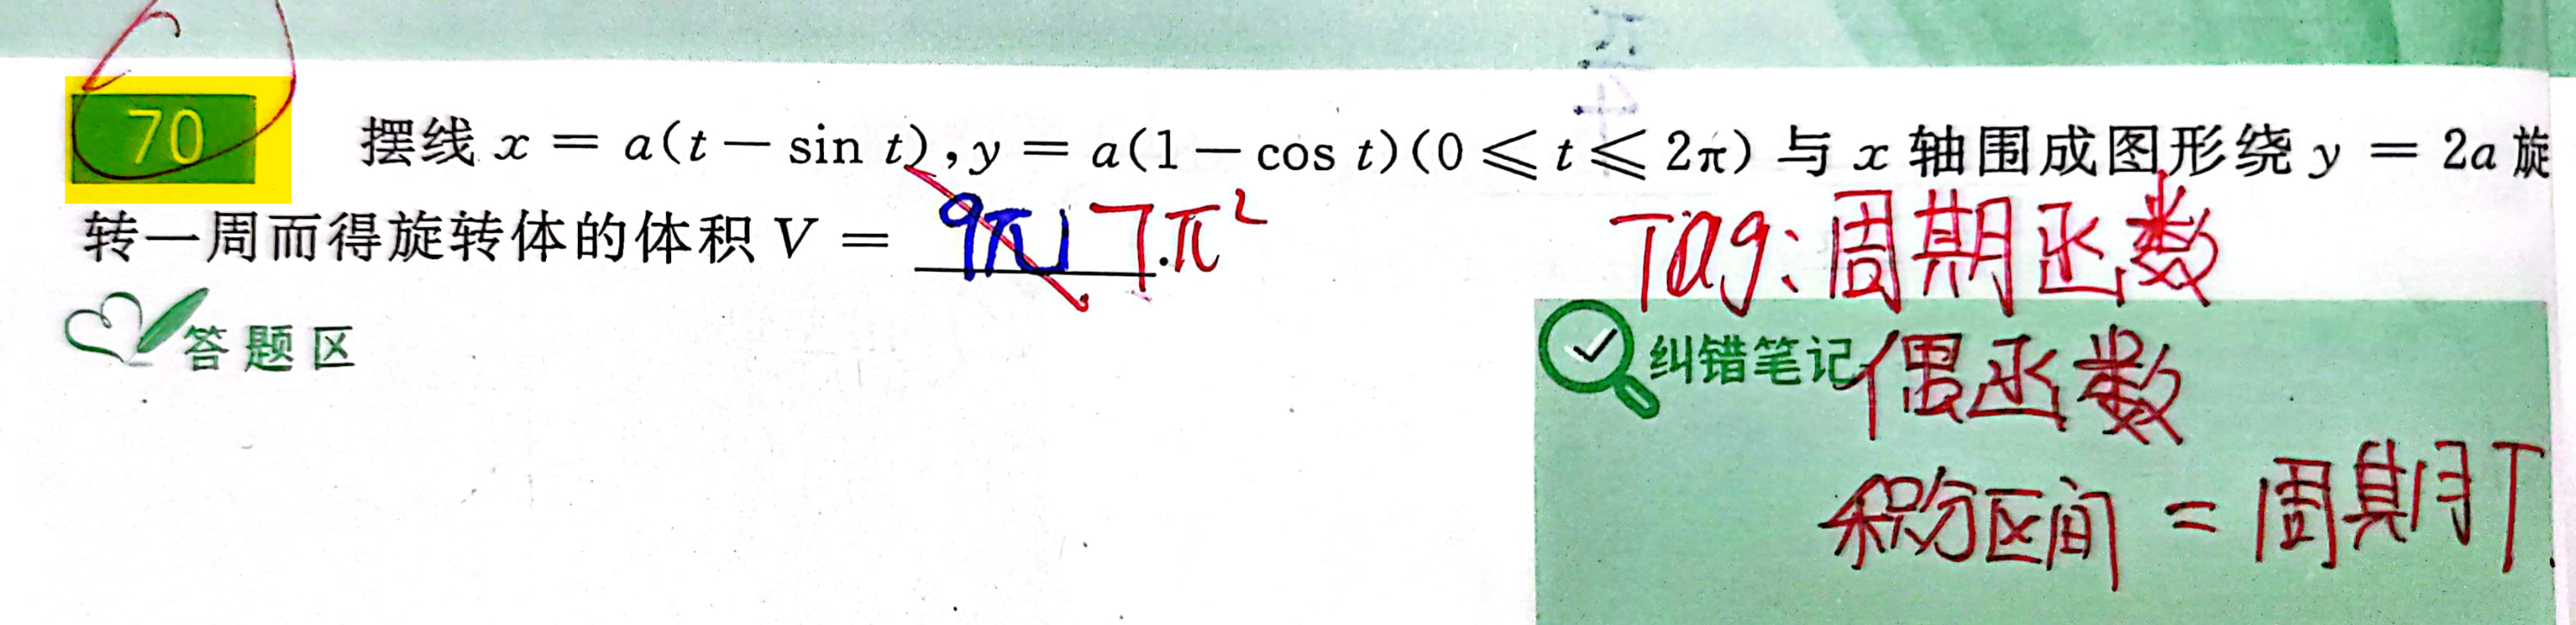 70 摆线 x = a(t − sin t), y = a(1 − cos t)(0 ⩽ t ⩽ 2π) 与 x 轴围成图形绕 y = 2a 旋
转一周而得旋转体的体积 V = 7π².
Tag: 周期函数
答题区
纠错笔记 偶函数
积分区间 = 周期T